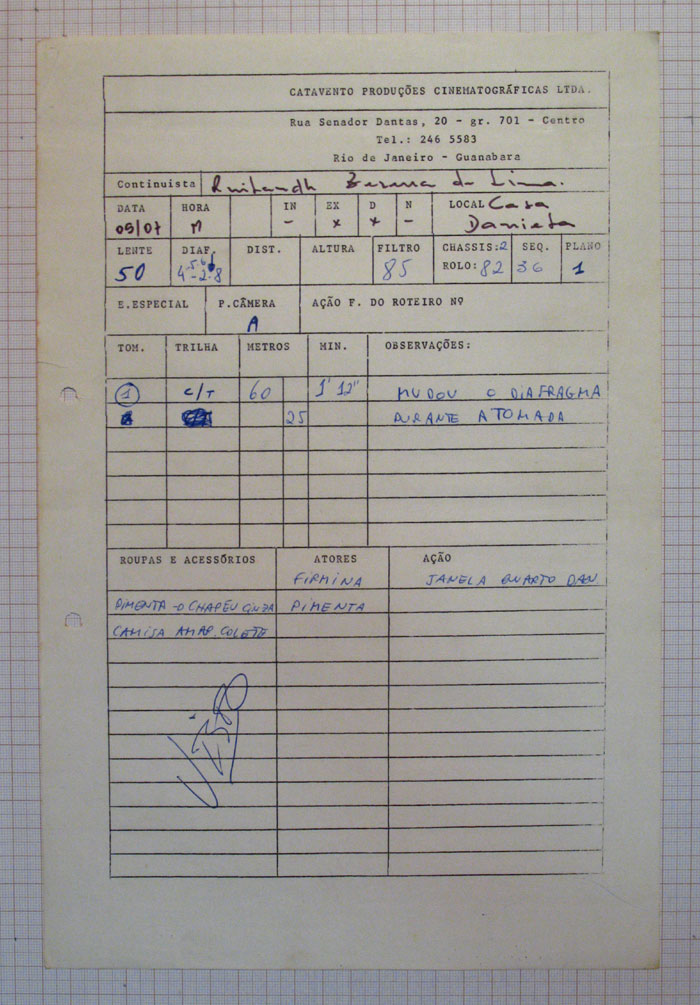 CATAVENTO PRODUÇÕES CINEMATOGRÁFICAS LTDA.
Rua Senador Dantas, 20 - gr. 701 - Centro
Tel.: 246 5583
Rio de Janeiro - Guanabara
Continuista Bezerra de Lima.
DATA HORA IN EX D N LOCAL Casa
05/07 M - x x - Daniela
LENTE DIAF. DIST. ALTURA FILTRO CHASSIS: 2 SEQ. PLANO
50 4-2.8 5.6 85 ROLO: 82 36 1
E.ESPECIAL P.CÂMERA AÇÃO F. DO ROTEIRO Nº
A
TOM. TRILHA METROS MIN. OBSERVAÇÕES:
1 C/T 60 1' 12" MUDOU O DIAFRAGMA
25 DURANTE A TOMADA
ROUPAS E ACESSÓRIOS ATORES AÇÃO
FIRMINA JANELA QUARTO DAN
PIMENTA - O CHAPÉU CINZA PIMENTA
CAMISA AMAR. COLETE